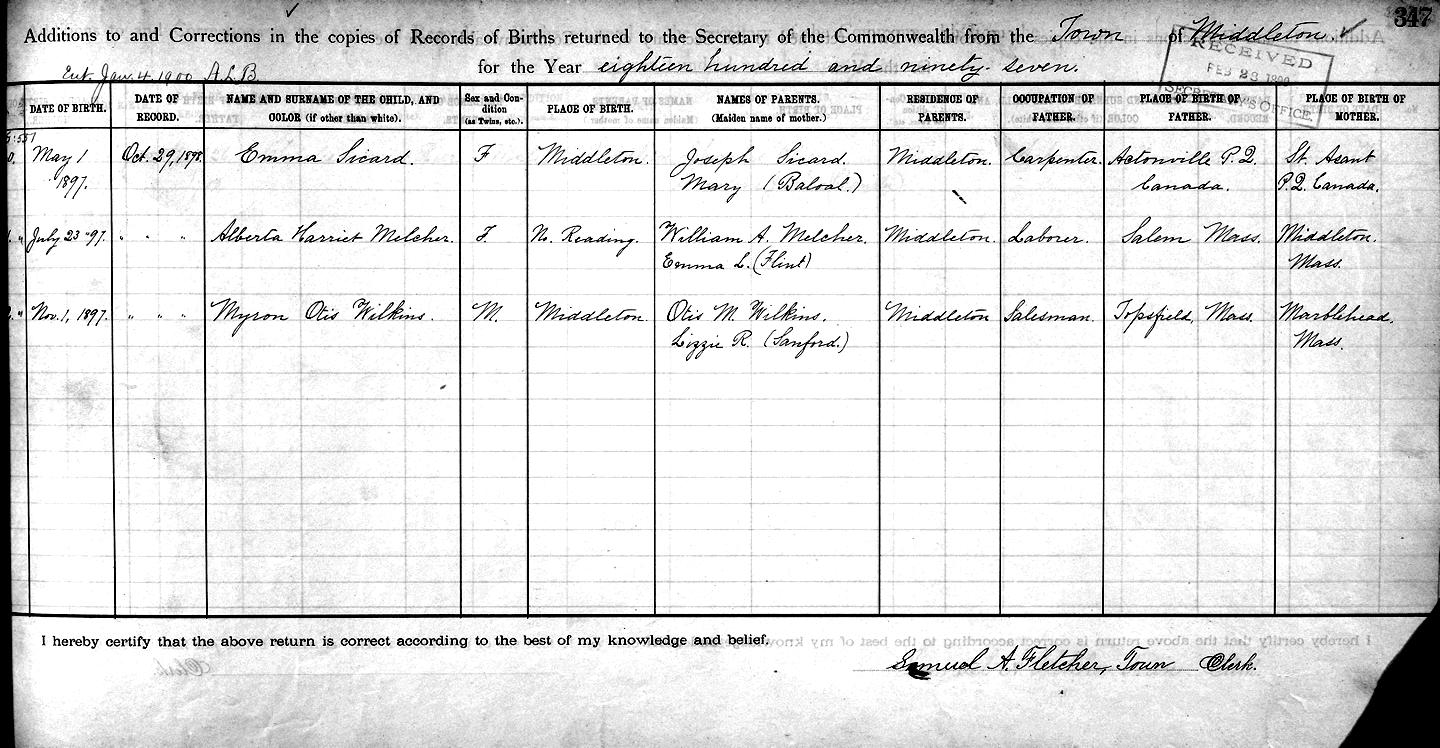 347
Additions to and Corrections in the copies of Records of Births returned to the Secretary of the Commonwealth from the Town of Middleton.
Ent. Jan. 4. 1900 A.L.B.
for the Year eighteen hundred and ninety-seven.
RECEIVED
FEB 23
SECRETARY'S OFFICE.
DATE OF BIRTH. DATE OF RECORD. NAME AND SURNAME OF THE CHILD, AND COLOR (if other than white). Sex and Condition (as Twins, etc.). PLACE OF BIRTH. NAMES OF PARENTS. (Maiden name of mother.) RESIDENCE OF PARENTS. OCCUPATION OF FATHER. PLACE OF BIRTH OF FATHER. PLACE OF BIRTH OF MOTHER.
May 1 Oct. 29, 1898. Emma Sicard. F Middleton. Joseph Sicard. Middleton. Carpenter. Actonville P.Q. St. Asant
1897. Mary (Baloal.) Canada. P.Q. Canada.
July 23 "97. " " " Alberta Harriet Melcher. F. No. Reading. William A. Melcher. Middleton. Laborer. Salem Mass. Middleton.
Emma L. (Flint) Mass.
Nov. 1, 1897. " " " Myron Otis Wilkins. M. Middleton. Otis M. Wilkins. Middleton Salesman. Topsfield, Mass. Marblehead,
Lizzie R. (Sanford.) Mass.
I hereby certify that the above return is correct according to the best of my knowledge and belief.
Samuel A. Fletcher, Town Clerk.